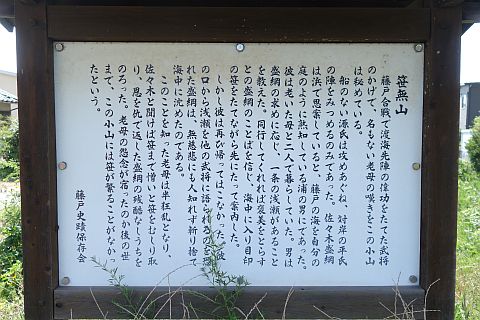 笹無山
藤戸合戦で渡海先陣の偉功をたてた武将
のかげで、名もない老母の嘆きをこの小山
は秘めている。
船のない源氏は攻めあぐね、対岸の平氏
の陣をみつめるのみであった。佐々木盛綱
は浜で思案していると、藤戸の海を自分の
庭のように熟知している浦の男にであった。
彼は老いた母と二人で暮らしていた。男は
盛綱の求めに応じ、一条の浅瀬があること
を教えた。同行してくれれば褒美をとらす
との盛綱のことばを信じ、海中に入り目印
の笹をたてながら先にたって案内した。
しかし彼は再び帰ってはこなかった。彼
の口から浅瀬を他の武将に語られるのを恐
れた盛綱は、無慈悲にも人知れず斬り捨て
海中に沈めたのである。
このことを知った老母は半狂乱となり、
佐々木と聞けば笹まで憎いと笹をむしり取
り、恩を仇で返した盛綱の残酷なしうちを
のろった。老母の怨念が宿ったのか後の世
まで、この小山には笹が繁ることがなかっ
たという。
藤戸史蹟保存会